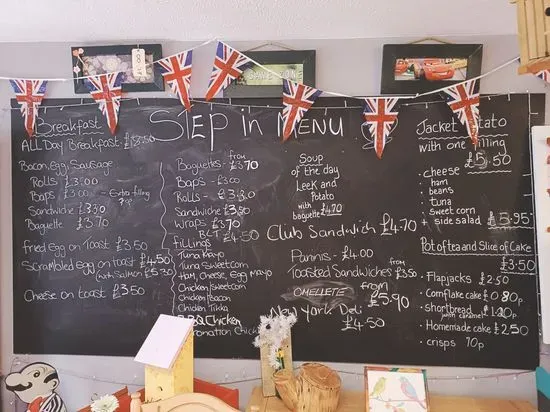 Breakfast
ALL Day Breakfast £8.50
Bacon, Egg, Sausage
Rolls £3.00
Baps £3.00
Extra filling
70p
Sandwiche £3.30
Baguette £3.70
Fried Egg on Toast £3.50
Scrambled Egg on toast £4.50
(with Salmon £5.30
Cheese on toast £3.50
STEP in MENU
Baguettes from £3.70
Baps - £3.00
Rolls - £3.30
Sandwiche £3.50
Wraps £3.70
BLT £4.50
fillings
Tuna Mayo
Tuna Sweetcorn
Ham, Cheese, Egg Mayo
Chicken Sweetcorn
Chicken Bacon
Chicken Tikka
BBQ Chicken
Coronation Chicken
Soup
of the day
Leek and
Potato
with
baguette £4.70
Club Sandwich £4.70
Paninis - £4.00
Toasted Sandwiches from £3.50
OMELLETE from
£5.90
New York Deli
£4.50
Jacket Potato
with one filling
£5.50
• cheese
• ham
• beans
• tuna
• sweet corn
+ side salad £5.95
Pot of tea and Slice of Cake
£3.50
• Flapjacks £2.50
• Cornflake cake £0.80p
• shortbread £1.20p
with caramel
• Homemade cake £2.50
• crisps 70p